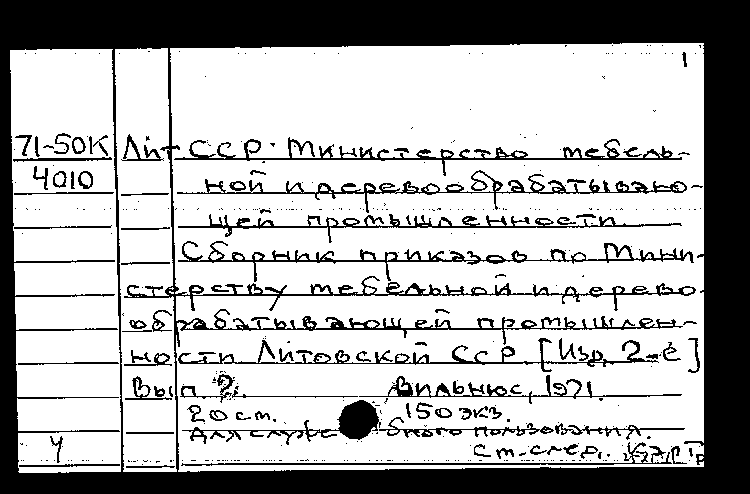 1
71-50К Лит ССР. Министерство мебель-
4010 ной и деревообрабатываю-
щей промышленности.
Сборник приказов по Мини-
стерству мебельной и дерево-
обрабатывающей промышлен-
ности Литовской ССР. [Изд. 2-е]
Вып. 2. Вильнюс, 1971.
20 см. 150 экз.
Для служебного пользования.
Ч См. след.